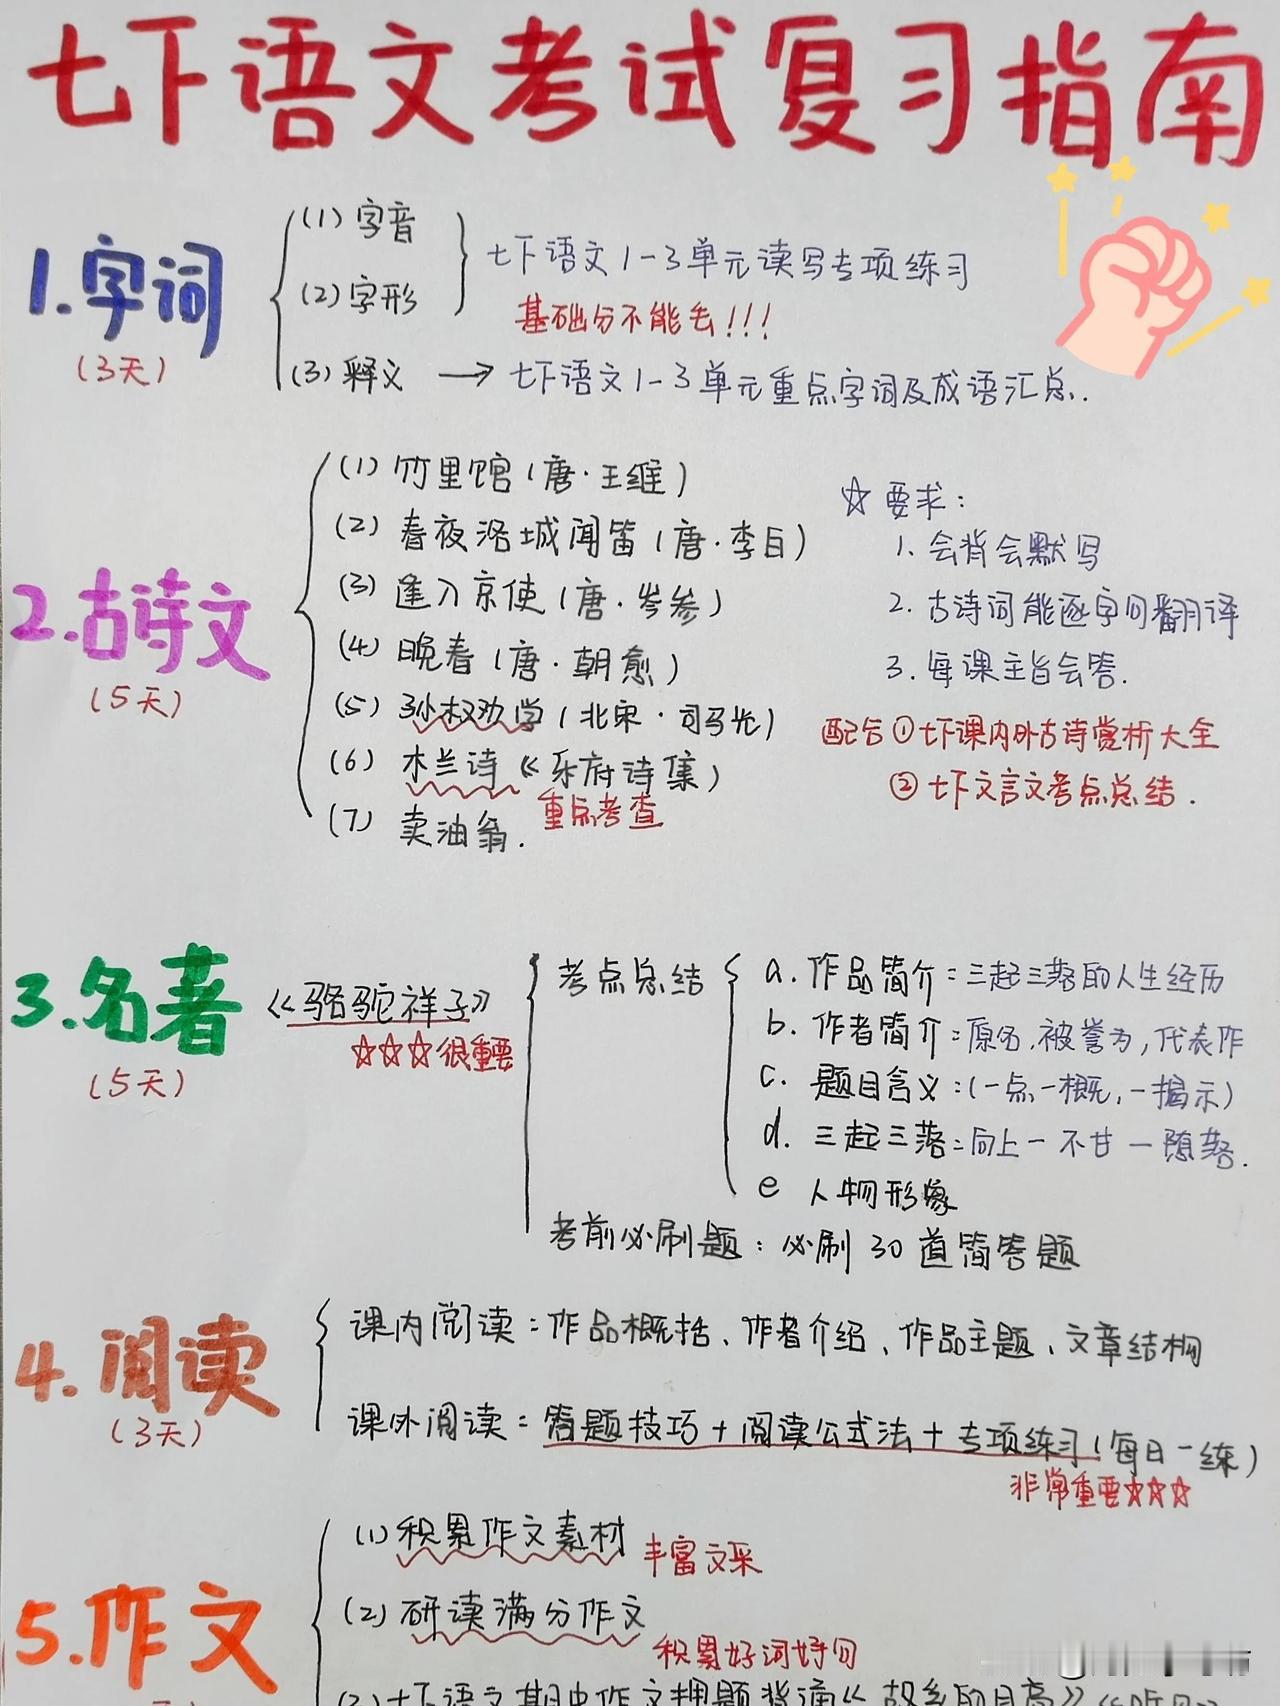 七下语文考试复习指南
1.字词
(3天)
(1)字音
(2)字形
七下语文1-3单元读写专项练习
基础分不能丢!!!
(3)释义 → 七下语文1-3单元重点字词及成语汇总.
2.古诗文
(5天)
(1)竹里馆(唐·王维)
(2)春夜洛城闻笛(唐·李白)
(3)逢入京使(唐·岑参)
(4)晚春(唐·朝愈)
(5)孙权劝学(北宋·司马光)
(6)木兰诗《乐府诗集)
重点考查
(7)卖油翁.
☆要求:
1.会背会默写
2.古诗词能逐字词翻译
3.每课主旨会答.
配合①七下课内外古诗赏析大全
②七下文言文考点总结.
3.名著
(5天)
《骆驼祥子》
☆☆☆很重要
考点总结
a.作品简介:三起三落的人生经历
b.作者简介:原名,被誉为,代表作
c.题目含义:(一点一概,一揭示)
d.三起三落:向上一不甘一堕落.
e 人物形象
考前必刷题:必刷30道简答题
4.阅读
(3天)
课内阅读:作品概括、作者介绍、作品主题、文章结构
课外阅读:答题技巧+阅读公式法+专项练习(每日一练)
非常重要☆☆☆
5.作文
(1)积累作文素材 丰富文采
(2)研读满分作文
积累好词好句
(3)七下语文期中作文押题背诵《故乡的月高》